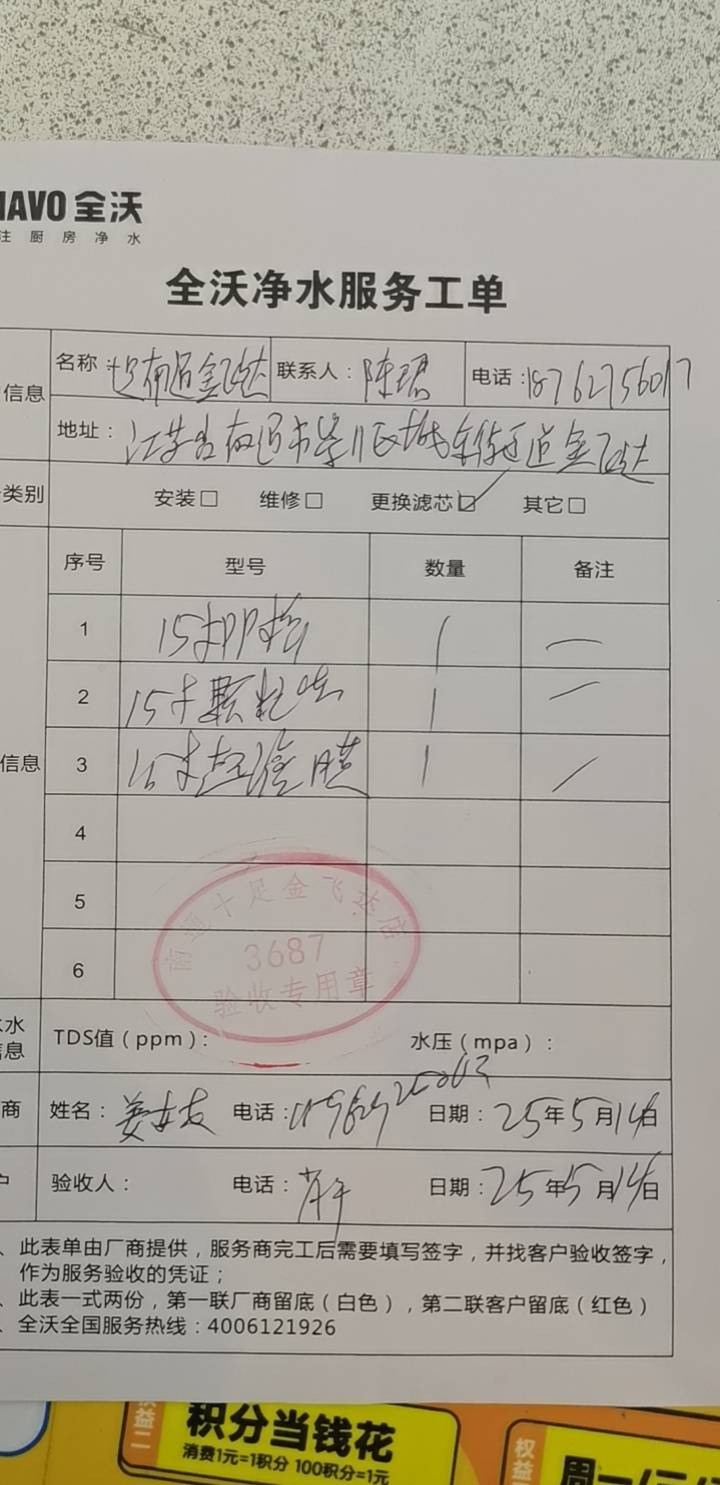 NAVO 全沃
注 厨 房 净 水
全沃净水服务工单
信息
名称： 南通金飞达 联系人：陈珺 电话：18762756017
地址：江苏省南通市崇川区城东街道金飞达
类别 安装□ 维修□ 更换滤芯☑ 其它□
序号 型号 数量 备注
1 15寸PP棉 1 一
2 15寸颗粒炭 1 一
信息 3 15寸超滤膜 1 /
4
5
6
南通十足金飞达店
3687
验收专用章
水 TDS值（ppm）： 水压（mpa）：
信息
商 姓名：姜 电话： 日期：25年5月14日
户 验收人： 电话： 日期：25年5月14日
、此表单由厂商提供，服务商完工后需要填写签字，并找客户验收签字，
作为服务验收的凭证；
、此表一式两份，第一联厂商留底（白色），第二联客户留底（红色）
、全沃全国服务热线：4006121926
权益二 积分当钱花
消费1元=1积分 100积分=1元
权益 周一